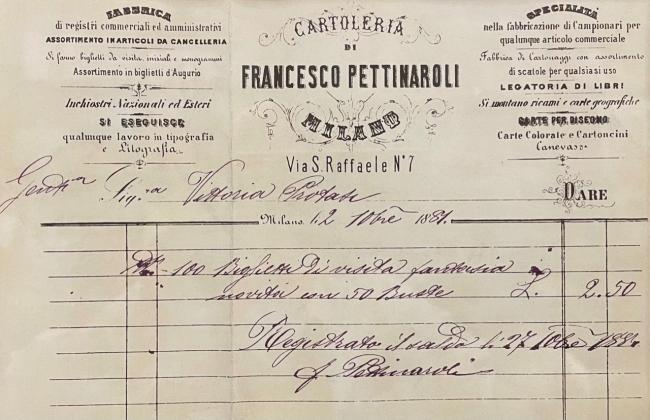 FABBRICA
di registri commerciali ed amministrativi
ASSORTIMENTO IN ARTICOLI DA CANCELLERIA
Si fanno biglietti da visita, iniziali e monogrammi
Assortimento in biglietti d'Augurio
Inchiostri Nazionali ed Esteri
SI ESEGUISCE
qualunque lavoro in tipografia
e Litografia
CARTOLERIA
DI
FRANCESCO PETTINAROLI
MILANO
Via S. Raffaele N.° 7
SPECIALITÀ
nella fabbricazione di Campionari per
qualunque articolo commerciale
Fabbrica di Cartonaggi con assortimento
di scatole per qualsiasi uso
LEGATORIA DI LIBRI
Si montano ricami e carte geografiche
CARTE PER DISEGNO
Carte Colorate e Cartoncini
Canevass
Sig.ra Vittoria
DARE
Milano 12 10bre 1881.
100 Biglietti di visita fantasia
novità con 50 Buste L. 2.50
Registrato il saldo li 27 10bre 1881
f. Pettinaroli